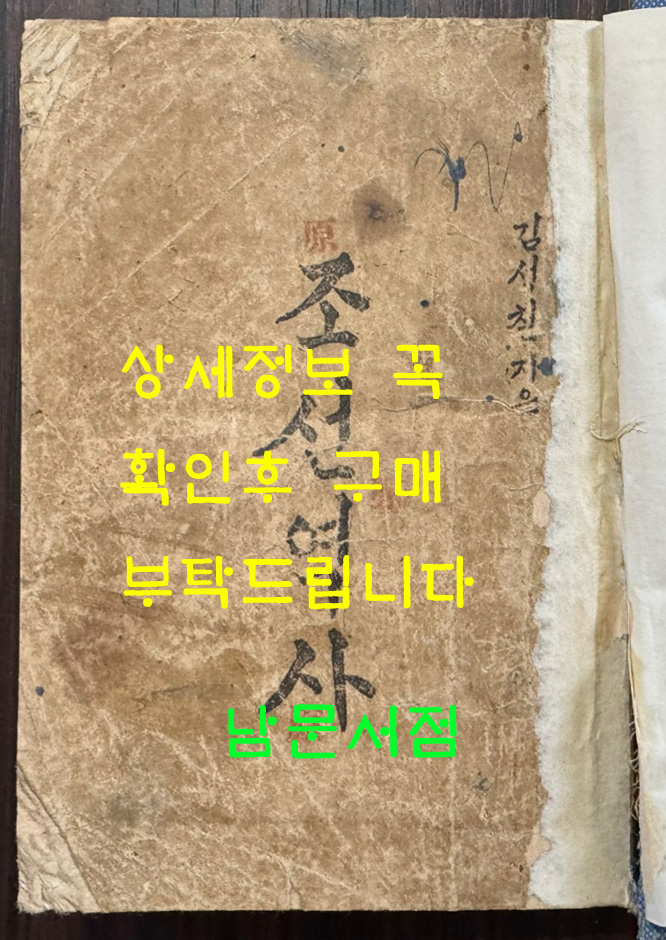 김서친 지은
原
조선역사
상세정보 꼭
확인후 구매
부탁드립니다
남문서점